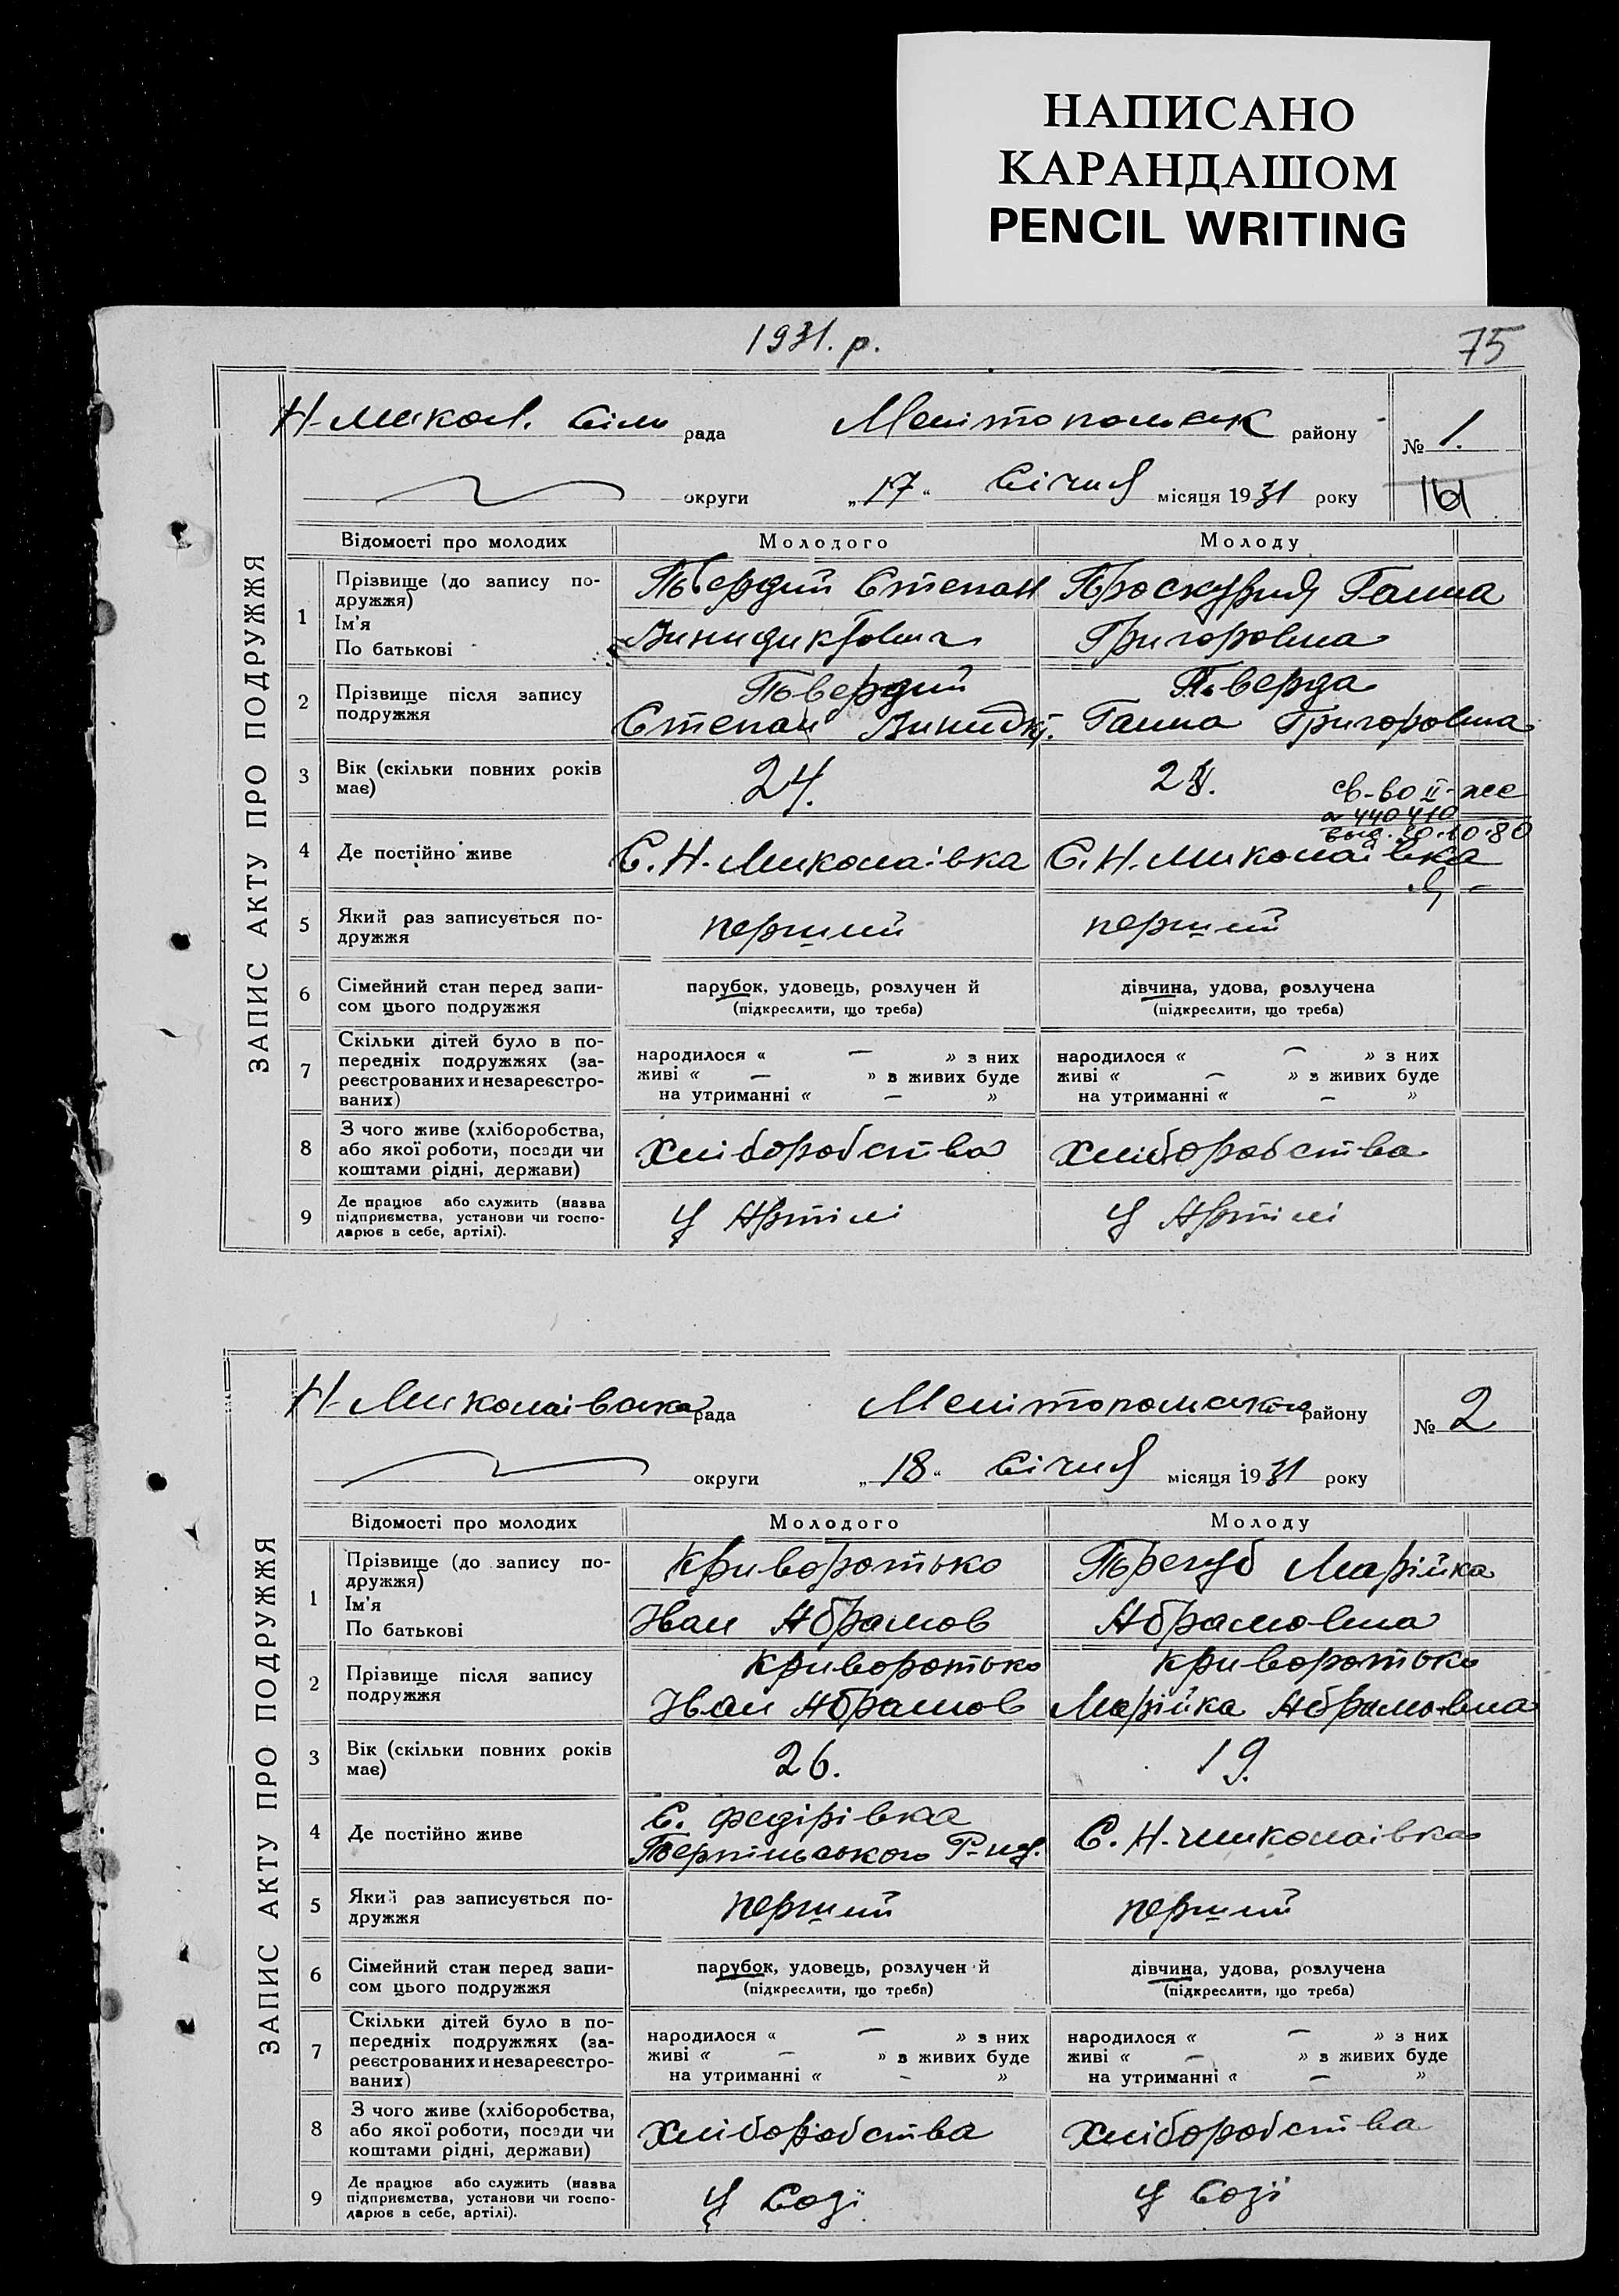 НАПИСАНО
КАРАНДАШОМ
PENCIL WRITING
1931. р.
75
ЗАПИС АКТУ ПРО ПОДРУЖЖЯ
Н-Микол. Сіль рада Мелітопольськ району № 1.
округи „17“ Січня місяця 1931 року 161
Відомості про молодих Молодого Молоду
1 Прізвище (до запису по-
дружжя)
Ім'я
По батькові
Твердий Степан
Винидиктович
Проскурня Ганна
Григоровна
2 Прізвище після запису
подружжя
Твердий
Степан Винидкт.
Тверда
Ганна Григоровна
3 Вік (скільки повних років
має)
24.
св-во II-же
440410
выд. 30.10.80
4 Де постійно живе С. Н. Миколаівка С. Н. Миколаівка
5 Який раз записується по-
дружжя
перший перший
6 Сімейний стан перед запи-
сом цього подружжя
парубок, удовець, розлучен й
(підкреслити, що треба)
дівчина, удова, розлучена
(підкреслити, що треба)
7 Скільки дітей було в по-
передніх подружжях (за-
реєстрованих и незареєстро-
ваних)
народилося « — » з них
живі « — » з живих буде
на утриманні « — »
народилося « — » з них
живі « — » з живих буде
на утриманні « — »
8 З чого живе (хліборобства,
або якої роботи, посади чи
коштами рідні, держави)
Хліборобства Хліборобства
9 Де працює або служить (назва
підприємства, установи чи госпо-
дарює в себе, артілі).
У Артілі У Артілі
ЗАПИС АКТУ ПРО ПОДРУЖЖЯ
Н-Миколаівська рада Мелітопольського району № 2
округи „18“ Січня місяця 1931 року
Відомості про молодих Молодого Молоду
1 Прізвище (до запису по-
дружжя)
Ім'я
По батькові
Криворотько
Іван Абрамов
Трегуб Марійка
Абрамовна
2 Прізвище після запису
подружжя
Криворотько
Іван Абрамов
Криворотько
Марійка Абрамовна
3 Вік (скільки повних років
має)
26. 19.
4 Де постійно живе
С. Федірівка
Р-ну.
С. Н-Миколаівка
5 Який раз записується по-
дружжя
перший перший
6 Сімейний стан перед запи-
сом цього подружжя
парубок, удовець, розлучен й
(підкреслити, що треба)
дівчина, удова, розлучена
(підкреслити, що треба)
7 Скільки дітей було в по-
передніх подружжях (за-
реєстрованих и незареєстро-
ваних)
народилося « — » з них
живі « — » з живих буде
на утриманні « — »
народилося « — » з них
живі « — » з живих буде
на утриманні « — »
8 З чого живе (хліборобства,
або якої роботи, посади чи
коштами рідні, держави)
Хліборобства Хліборобства
9 Де працює або служить (назва
підприємства, установи чи госпо-
дарює в себе, артілі).
У Созі У Созі